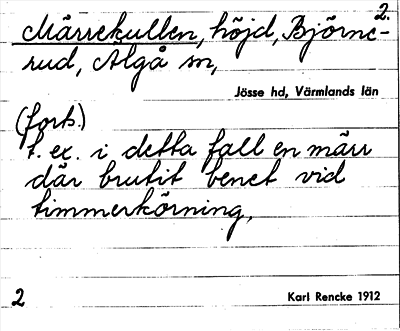 2.
Märrekullen, höjd, Björne-
rud, Älgå sn,
Jösse hd, Värmlands län
(forts.)
t. ex. i detta fall en märr
där brutit benet vid
timmerkörning,
2
Karl Rencke 1912